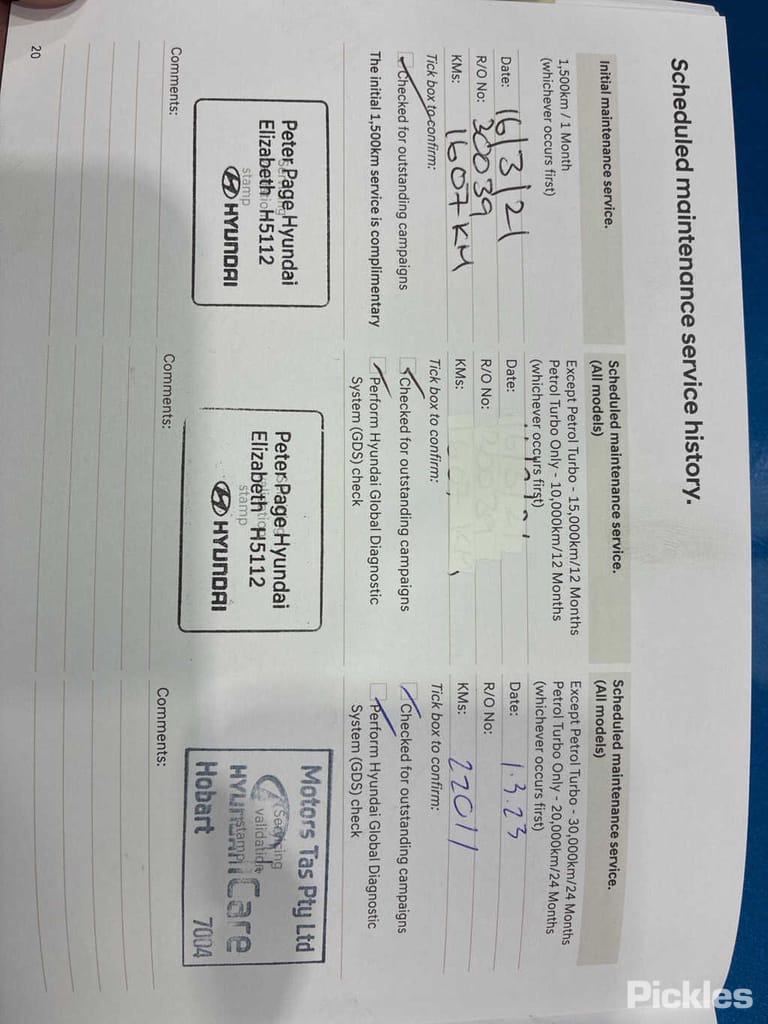 Scheduled maintenance service history.
Initial maintenance service.
1,500km / 1 Month
(whichever occurs first)
Date: 16/3/21
R/O No: 30039
KMs: 1607 KM
Tick box to confirm:
Checked for outstanding campaigns
The initial 1,500km service is complimentary
Peter Page Hyundai
Elizabeth H5112
stamp
HYUNDAI
Comments:
Scheduled maintenance service.
(All models)
Except Petrol Turbo - 15,000km/12 Months
Petrol Turbo Only - 10,000km/12 Months
(whichever occurs first)
Date:
R/O No:
KMs:
Tick box to confirm:
Checked for outstanding campaigns
Perform Hyundai Global Diagnostic
System (GDS) check
Peter Page Hyundai
Elizabeth H5112
stamp
HYUNDAI
Comments:
Scheduled maintenance service.
(All models)
Except Petrol Turbo - 30,000km/24 Months
Petrol Turbo Only - 20,000km/24 Months
(whichever occurs first)
Date: 1.3.23
R/O No:
KMs: 22011
Tick box to confirm:
Checked for outstanding campaigns
Perform Hyundai Global Diagnostic
System (GDS) check
Motors Tas Pty Ltd
Servicing
validation
stamp
HYUNDAI iCare
Hobart 7004
Comments:
20
Pickles